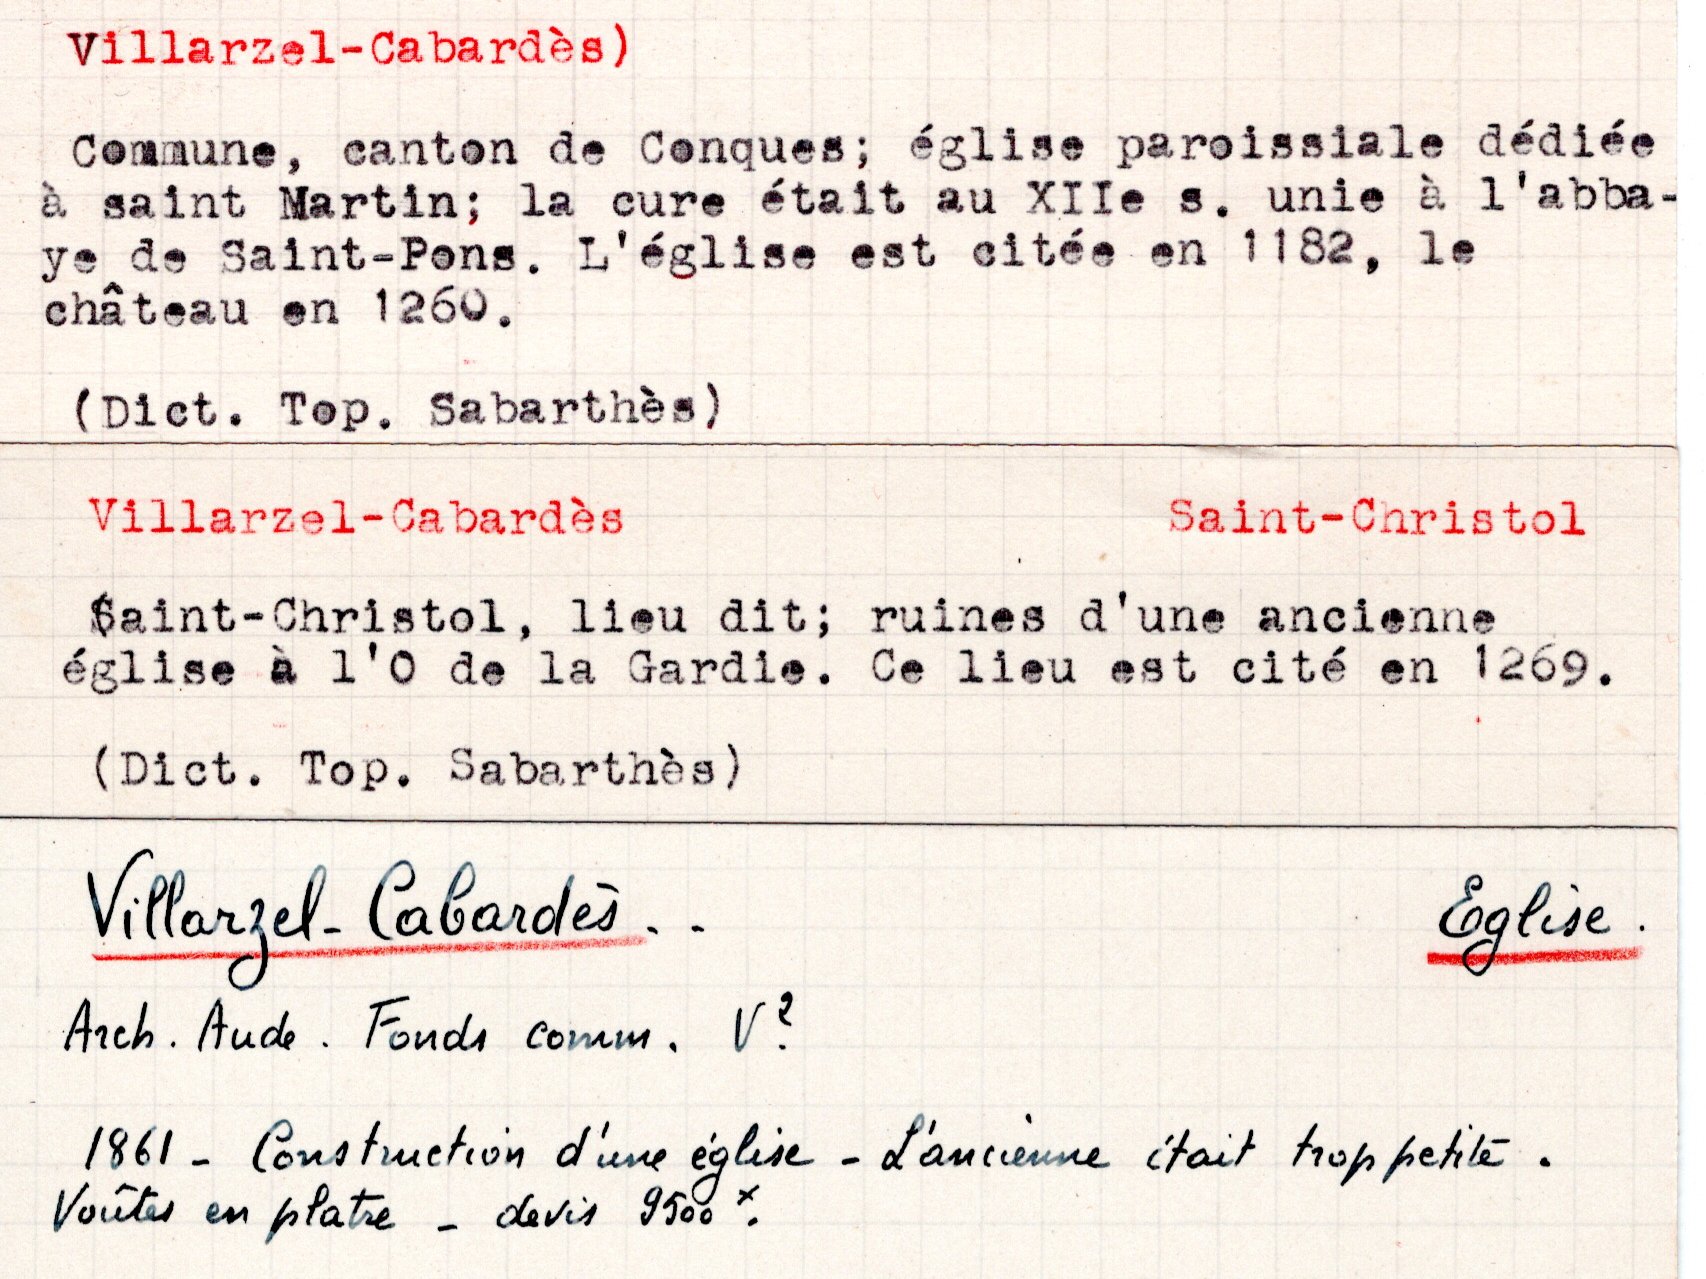 Villarzel-Cabardès)
Commune, canton de Conques; église paroissiale dédiée
à saint Martin; la cure était au XIIe s. unie à l'abba-
ye de Saint-Pons. L'église est citée en 1182, le
château en 1260.
(Dict. Top. Sabarthès)
Villarzel-Cabardès Saint-Christol
Saint-Christol, lieu dit; ruines d'une ancienne
église à l'O de la Gardie. Ce lieu est cité en 1269.
(Dict. Top. Sabarthès)
Villarzel-Cabardès.. Eglise.
Arch. Aude. Fonds comm. V?
1861 - Construction d'une église - L'ancienne était trop petite.
Voûtes en platre - devis 9500